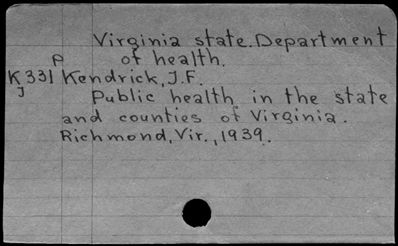 Virginia state. Department
P of health.
K331 Kendrick, J.F.
J Public health in the state
and counties of Virginia.
Richmond, Vir., 1939.